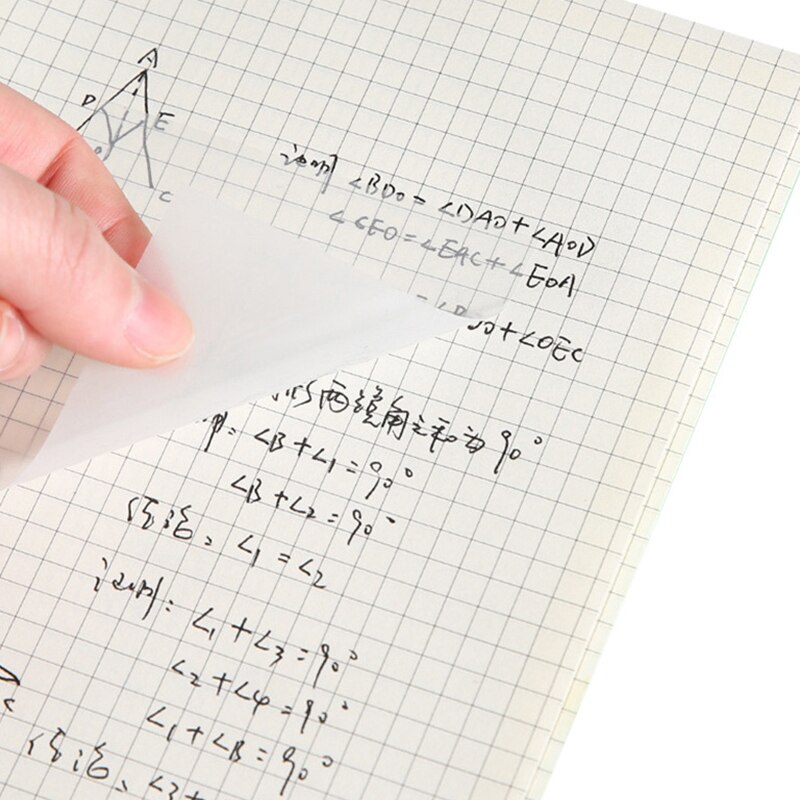 A
D
E
C
说明 ∠BDO = ∠DAO + ∠AOD
∠CEO = ∠EAC + ∠EOA
+ ∠OEC
形两锐角之和为 90°
∠B + ∠1 = 90°
∠B + ∠2 = 90°
结论、∠1 = ∠2
说明: ∠1 + ∠3 = 90°
∠2 + ∠4 = 90°
∠1 + ∠B = 90°
结论、∠3 +
C